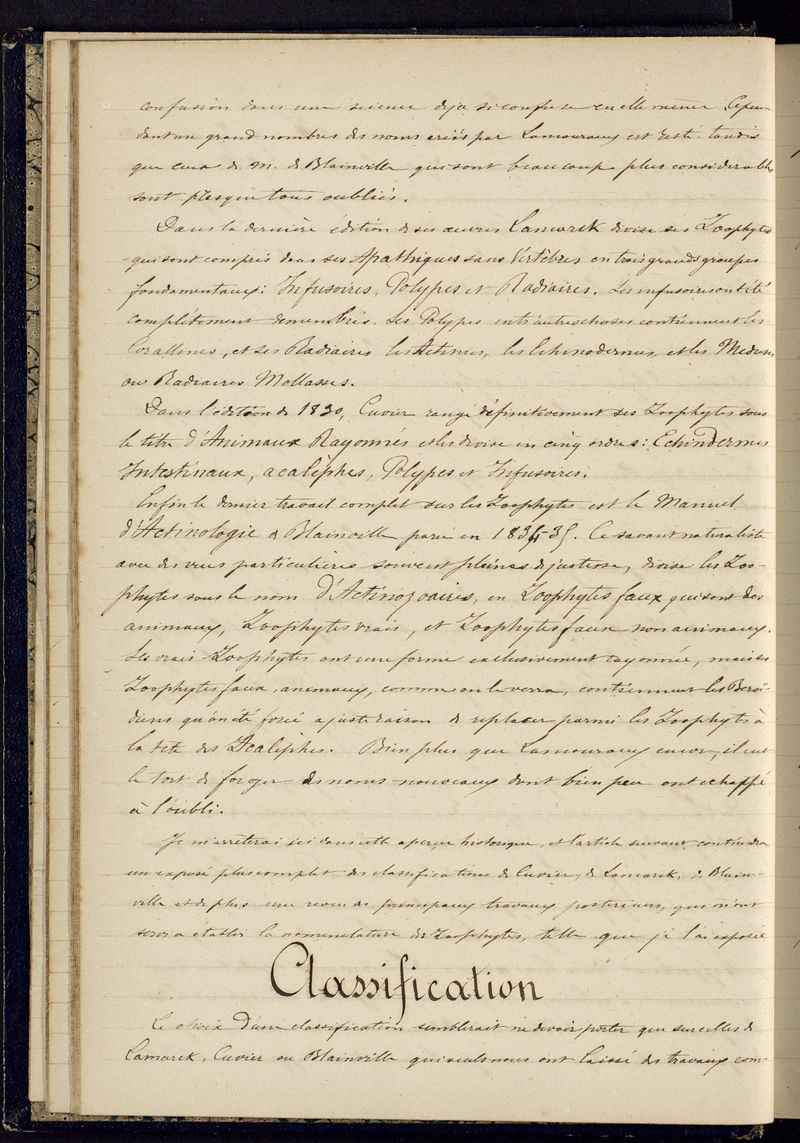 confusion dans une science deja si confuse en elle meme Cepen
dant un grand nombres des noms criés par Lamouroux est resté tandis
que ceux de M. de Blainville qui sont beaucoup plus considerables
sont presque tous oubliés.
Dans la dernière édition de ses œuvres Lamarck divise ses Zoophytes
qui sont compris dans ses Apathiques sans Vertèbres en trois grands groupes
fondamentaux: Infusoires, Polypes et Radiaires. Les infusoires ont été
completement demembrés. Les Polypes entr'autres choses contiennent les
Corallines, et ses Radiaires les Actinies, les Echinodermes, et les Meduses
ou Radiaires Mollasses.
Dans l'édition de 1830, Cuvier range définitivement ses Zoophytes sous
le titre d'Animaux Rayonnés et les divise en cinq ordres: Echindermes
Intestinaux, acalèphes, Polypes et Infusoires.
Enfin le dernier travail complet sur les Zoophytes est le Manuel
d'Actinologie de Blainville parue en 1834-35. Ce savant naturaliste
avec des vues particulieres souvent pleines de justesse, divise les Zoo-
phytes sous le nom d'Actinozoaires, en Zoophytes faux qui sont des
animaux, Zoophytes vrais, et Zoophytes faux non animaux.
Ses vrais Zoophytes ont une forme exclusivement rayonnée, mais ses
Zoophytes faux, animaux, comme on le verra, contiennent les Beroï-
diens qu'on été forcé a juste raison de replacer parmi les Zoophytes à
la tete des Acalèphes. Bien plus que Lamouroux encore, il eut
le tort de forger des noms nouveaux dont bien peu ont echappé
à l'oubli.
Je m'arrêterai ici dans cette aperçu historique, et l'article suivant contiendra
un exposé plus complet des classifications de Cuvier, de Lamarck, de Blain-
ville et de plus une revue des principaux travaux posterieurs, qui m'ont
servi a etablir la nomenclature des Zoophytes, telle que je l'ai exposée
Classification
Le choix d'une classification semblerait ne devoir porter que sur celles de
Lamarck, Cuvier ou Blainville qui seuls nous ont laissé des travaux com-